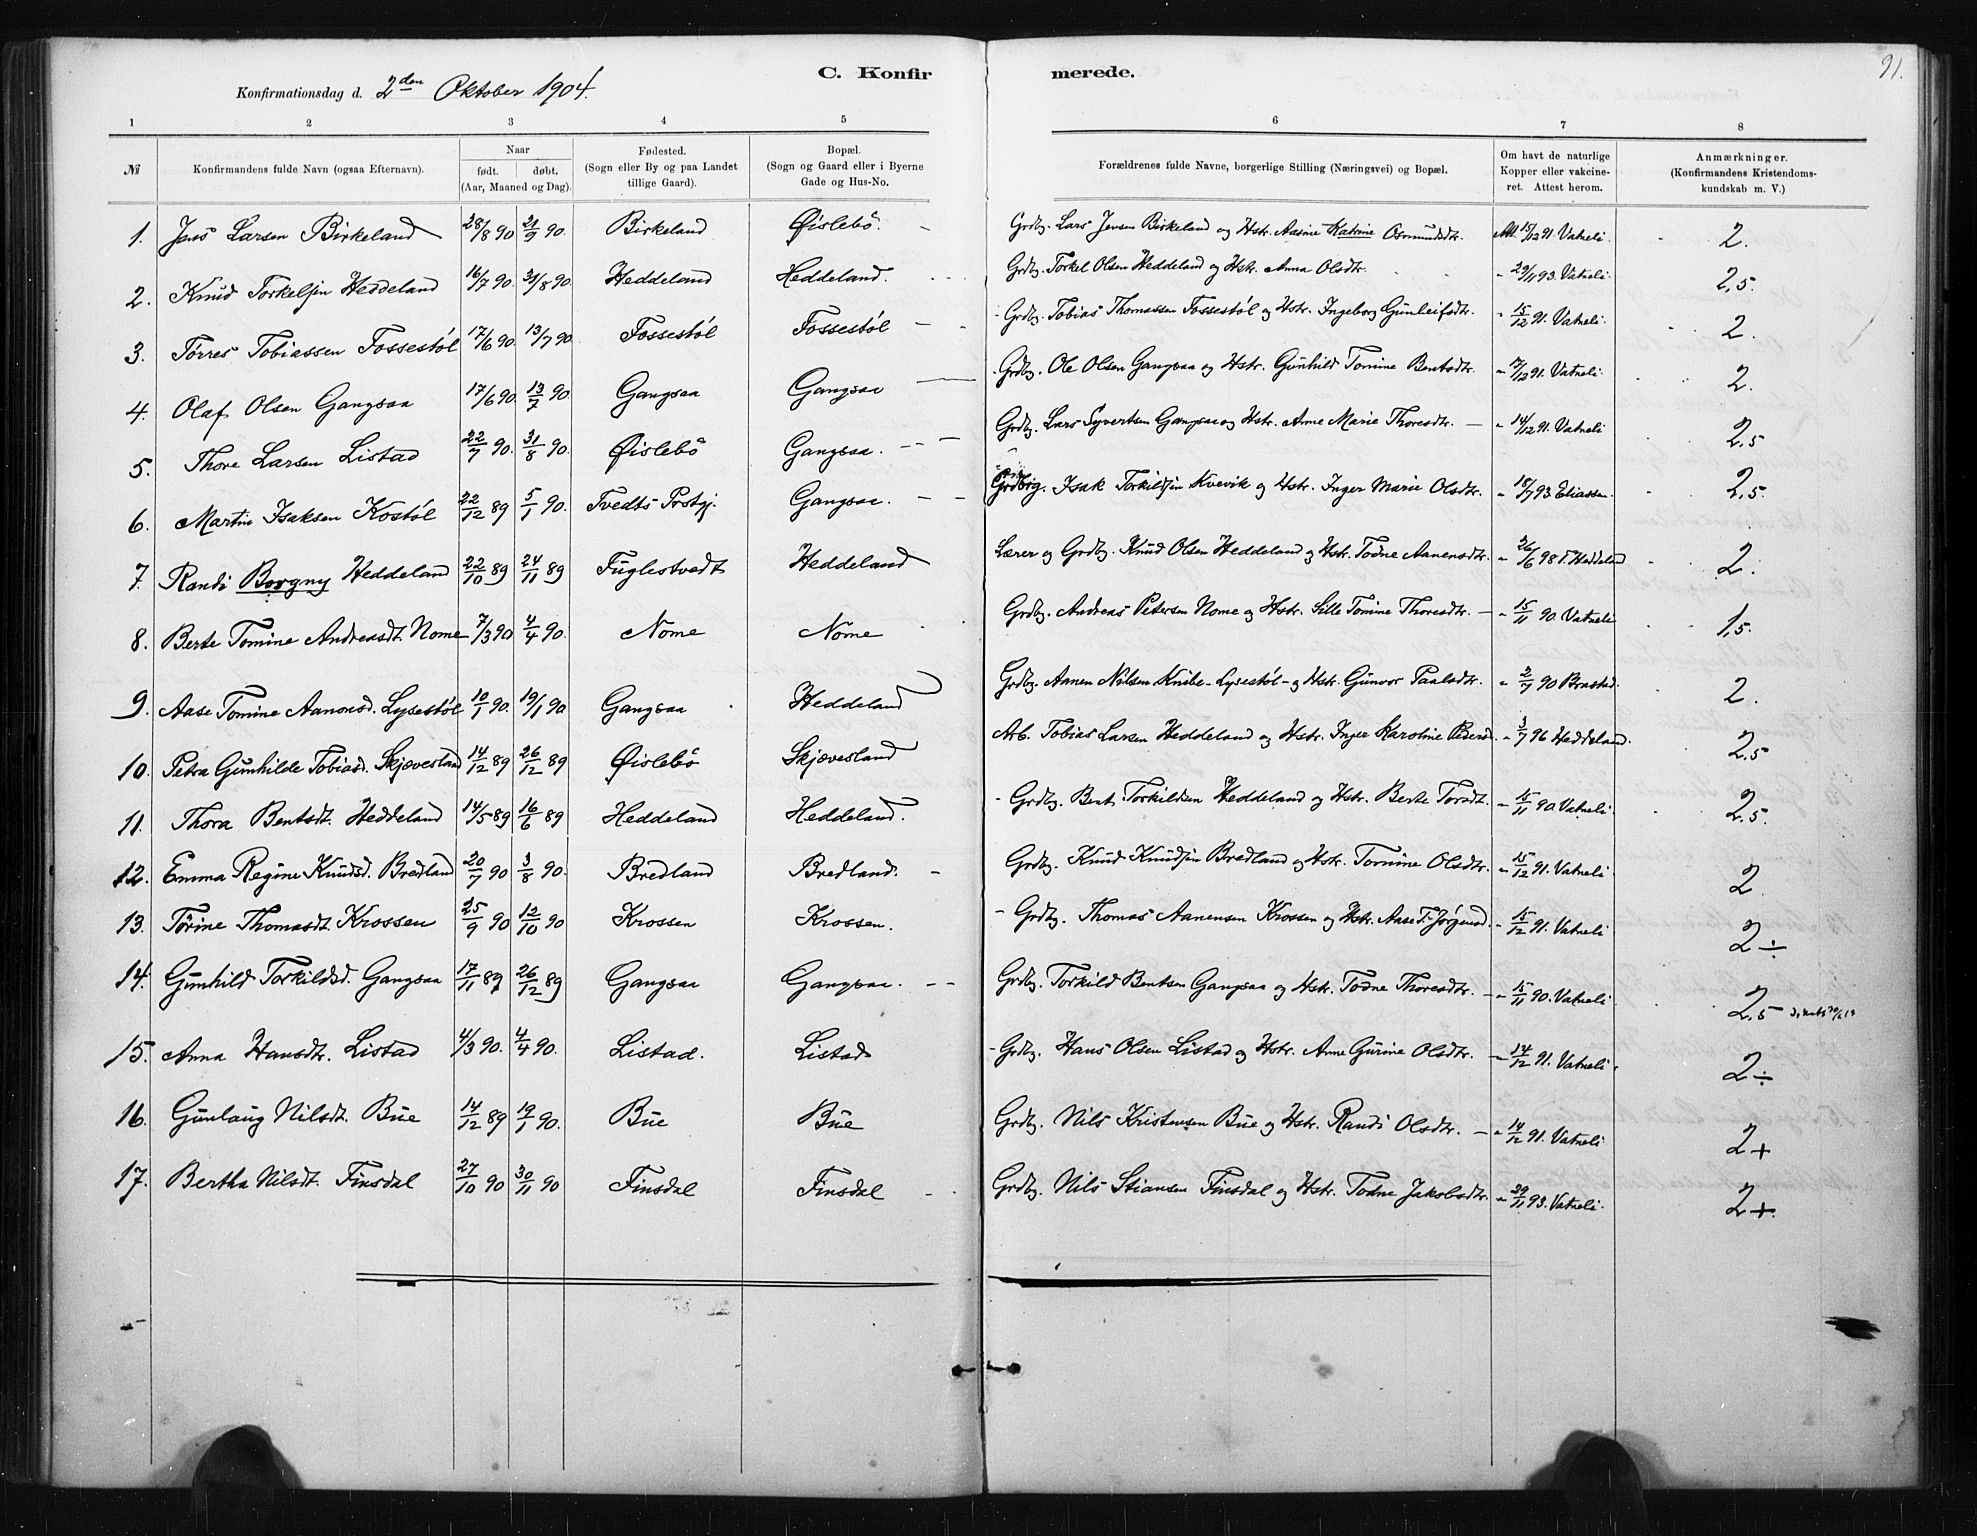 91.
C. Konfirmerede.
Konfirmationsdag d. 2den Oktober 1904.
1 2 3 4 5 6 7 8
№ Konfirmandens fulde Navn (ogsaa Efternavn). Naar født. døbt. (Aar, Maaned og Dag). Fødested. (Sogn eller By og paa Landet tillige Gaard). Bopæl. (Sogn og Gaard eller i Byerne Gade og Hus-No. Forældrenes fulde Navne, borgerlige Stilling (Næringsvei) og Bopæl. Om havt de naturlige Kopper eller vakcineret. Attest herom. Anmærkninger. (Konfirmandens Kristendomskundskab m. V.)
1. Jens Larsen Birkeland 28/8 90 21/9 90. Birkeland Øislebö. Grdbg. Lars Jensen Birkeland og Hstr. Aasine Katrine Osmundsdtr. Att. 15/12 91. Vatneli. 2.
2. Knud Torkelsen Heddeland 16/7 90. 31/8 90. Heddeland Heddeland. Grdbg. Torkel Olsen Heddeland og Hstr. Anna Olsdtr. " 29/11 93. Vatneli. 2,5.
3. Törres Tobiassen Fossestöl 17/6 90. 13/7 90 Fossestöl Fossestöl Grdbg. Tobias Thomassen Fossestöl og Hstr. Ingeborg Gunleifsdtr. " 15/12 91. Vatneli. 2.
4. Olaf Olsen Gangsaa 17/6 90. 13/7 90. Gangsaa Gangsaa Grdbg. Ole Olsen Gangsaa og Hstr. Gunhild Tomine Bentsdtr. " 17/12 91. Vatneli. 2.
5. Thore Larsen Listad 22/7 90. 31/8 90. Øislebö Gangsaa. Grdbg. Lars Syvertsen Gangsaa og Hstr. Anne Marie Thoresdtr. " 14/12 91. Vatneli 2,5
6. Martin Isaksen Kostöl 22/12 89 5/1 90. Tvedts Prstgj. Gangsaa. Grdbrg. Isak Torkildsen Kvevik og Hstr. Inger Marie Olsdtr. " 15/7 93 Eliassen. 2,5.
7. Randi Borgny Heddeland 22/10 89 24/11 89 Fuglestvedt Heddeland Lærer og Grdbg. Knud Olsen Heddeland og Hstr. Todne Aanensdtr. " 26/6 98 T. Heddeland 2.
8. Berte Tomine Andreasdt. Nome 7/3 90 4/4 90. Nome Nome Grdbg. Andreas Petersen Nome og Hstr. Sille Tomine Thoresdtr. " 15/11 90 Vatneli 1,5.
9. Aase Tomine Aanonsd. Lysestöl 10/1 90. 19/1 90 Gangsaa Heddeland Grdbg. Aanen Nilsen Knibe-Lysestöl- og Hstr. Gunvor Paalsdtr. " 2/7 90 Brastad. 2.
10. Petra Gunhilde Tobiasd. Skjævesland 14/12 89 26/12 89 Øislebö Skjævesland Arb. Tobias Larsen Heddeland og Hstr. Inger Karoline Pedersd. " 3/7 96 Heddeland. 2,5
11. Thora Bentsdt. Heddeland 14/5 89 16/6 89 Heddeland Heddeland. Grdbg. Bent Torkildsen Heddeland og Hstr. Berte Torsdt. " 15/11 90 Vatneli. 2,5.
12. Emma Regine Knudsd. Bredland 20/7 90 3/8 90. Bredland Bredland. Grdbg. Knud Knudsen Bredland og Hstr. Tomine Olsdtr. " 15/12 91. Vatneli. 2.
13. Törine Thomasdt. Krossen 25/9 90 12/10 90 Krossen Krossen. Grdbg. Thomas Aanensen Krossen og Hstr. Aase T. Jörgensd. " 15/12 91. Vatneli 2÷
14. Gunhild Torkildsd. Gangsaa 17/11 89 26/12 89 Gangsaa Gangsaa. Grdbg. Torkild Bentsen Gangsaa og Hstr. Todne Thoresdtr. " 15/11 90. Vatneli 2,5
15. Anna Hansdtr. Listad 4/3 90. 4/4 90. Listad. Listad Grdbg. Hans Olsen Listad og Hstr. Anne Gurine Olsdtr. " 14/12 91. Vatneli. 2÷
16. Gunlaug Nilsdt. Bue 14/12 89 19/1 90. Bue Bue Grdbg. Nils Kristensen Bue og Hstr. Randi Olsdtr. " 14/12 91. Vatneli 2+
17. Bertha Nilsdt. Finsdal 27/10 90 30/11 90 Finsdal Finsdal Grdbg. Nils Stiansen Finsdal og Hstr. Todne Jakobsdtr. " 29/11 93. Vatneli. 2+.